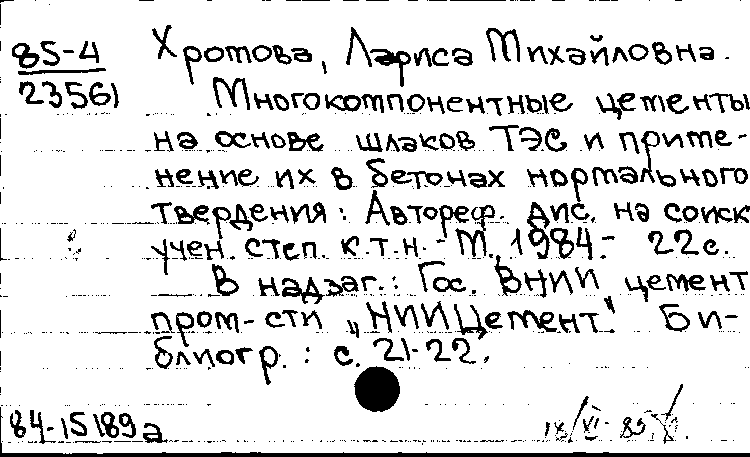 85-4
23561
Хромова, Лариса Михайловна.
Многокомпонентные цементы
на основе шлаков ТЭС и приме-
нение их в бетонах нормального
твердения: Автореф. дис. на соиск
учен. степ. к.т.н. - М., 1984.- 22с.
В надзаг.: Гос. ВНИИ цемент
пром-сти „НИИЦемент". Би-
блиогр.: с. 21-22.
84-15189а
18/VI-85